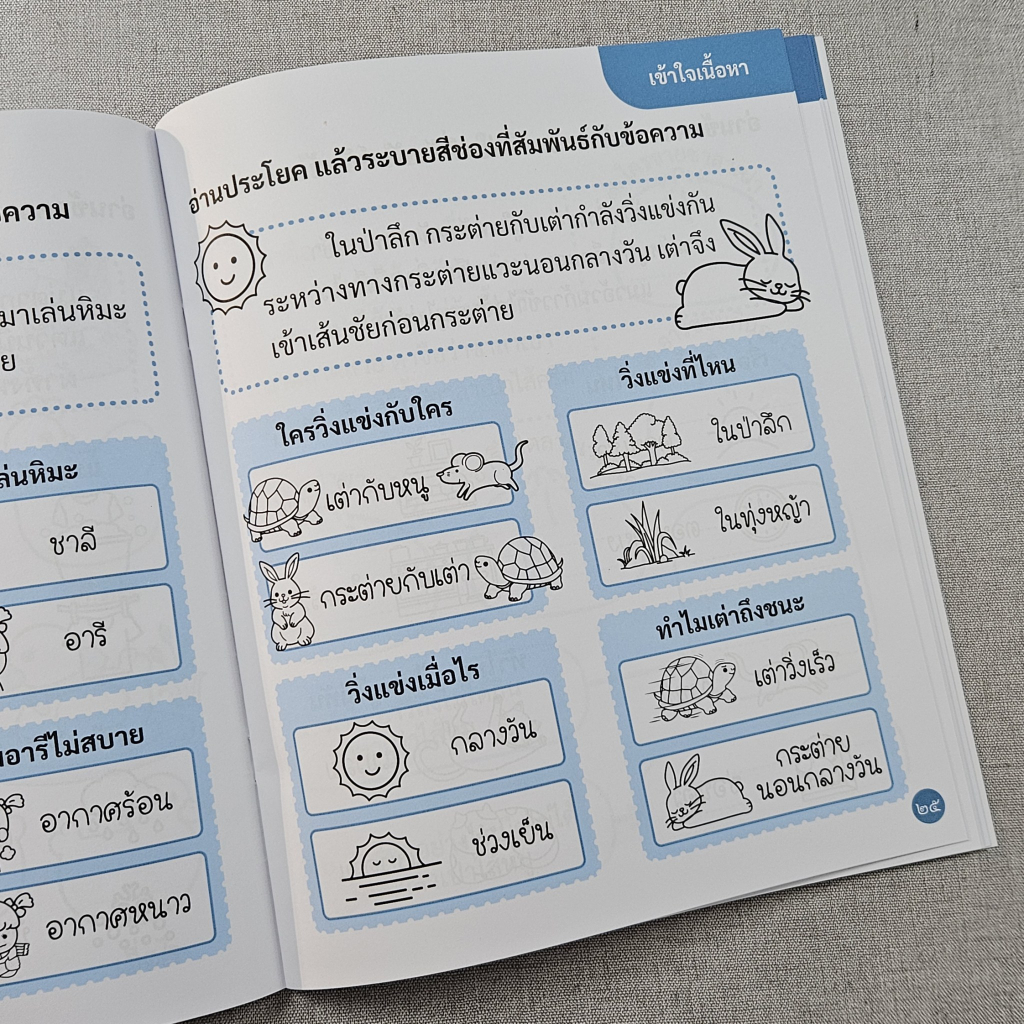 ความ
มาเล่นหิมะ
ย
ล่นหิมะ
ชาลี
อารี
อารีไม่สบาย
อากาศร้อน
อากาศหนาว
เข้าใจเนื้อหา
อ่านประโยค แล้วระบายสีช่องที่สัมพันธ์กับข้อความ
ในป่าลึก กระต่ายกับเต่ากำลังวิ่งแข่งกัน
ระหว่างทางกระต่ายแวะนอนกลางวัน เต่าจึง
เข้าเส้นชัยก่อนกระต่าย
ใครวิ่งแข่งกับใคร
เต่ากับหนู
กระต่ายกับเต่า
วิ่งแข่งที่ไหน
ในป่าลึก
ในทุ่งหญ้า
วิ่งแข่งเมื่อไร
กลางวัน
ช่วงเย็น
ทำไมเต่าถึงชนะ
เต่าวิ่งเร็ว
กระต่าย
นอนกลางวัน
๒๕